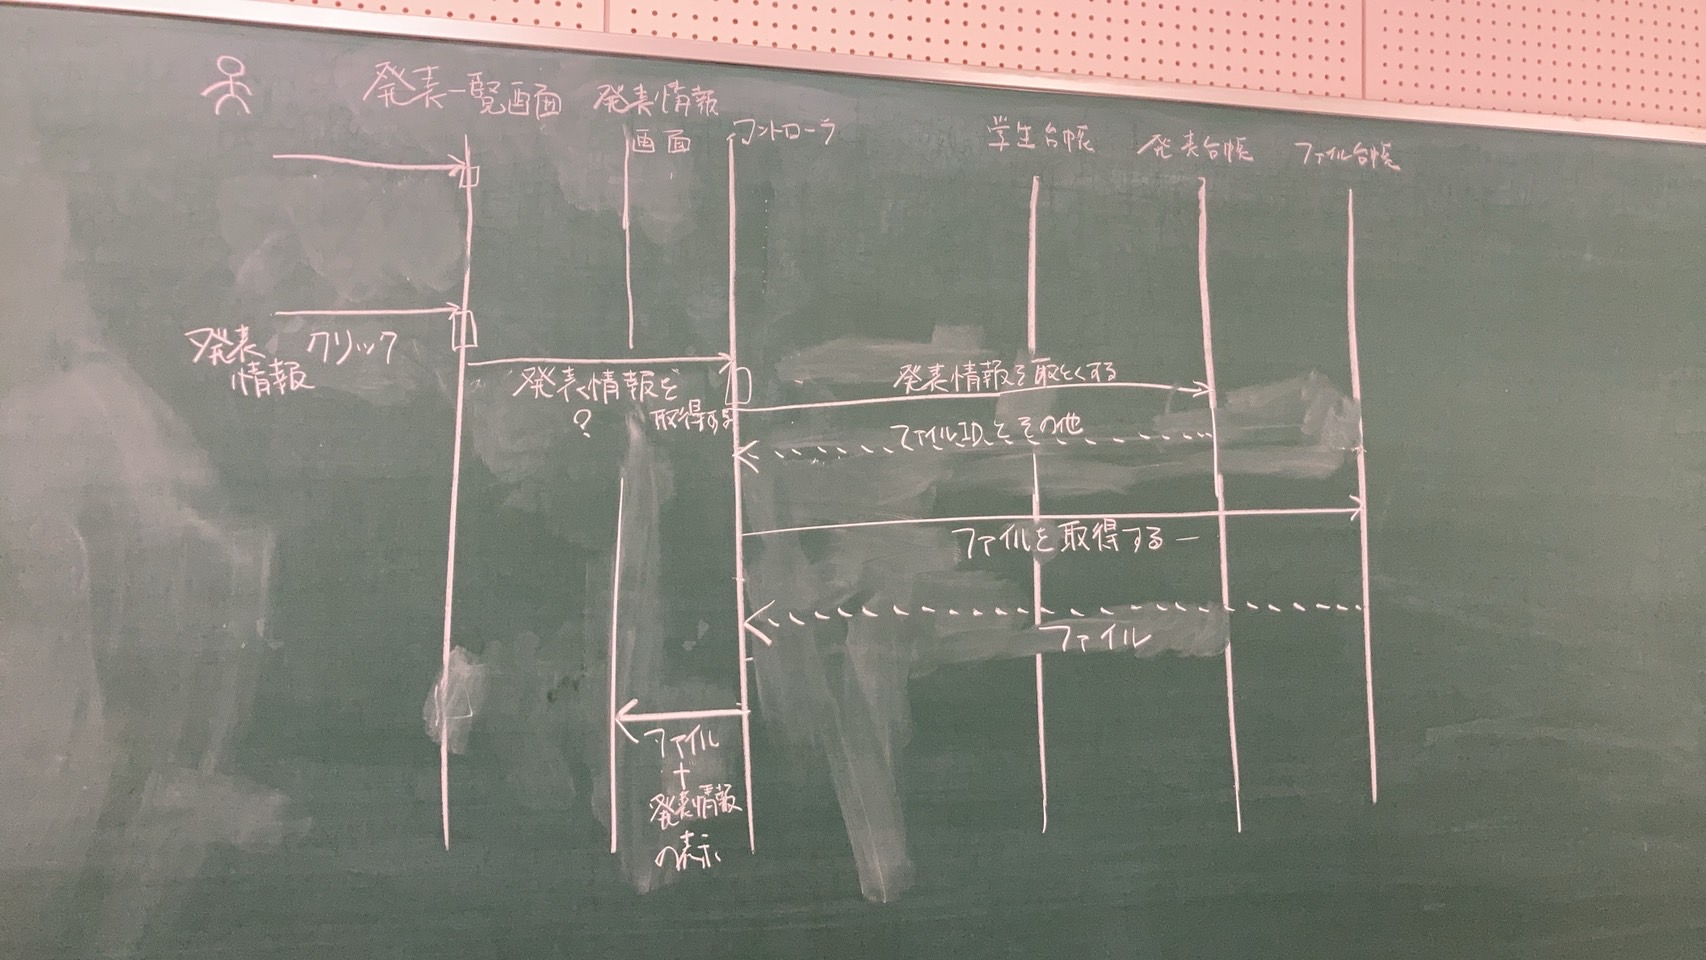 発表一覧画面
発表情報
画面
コントローラ
学生台帳
発表台帳
ファイル台帳
発表
情報
クリック
発表情報を
?
取得する
発表情報を取とくする
ファイルIDとその他
ファイルを取得する
ファイル
ファイル
+
発表情報
の表示